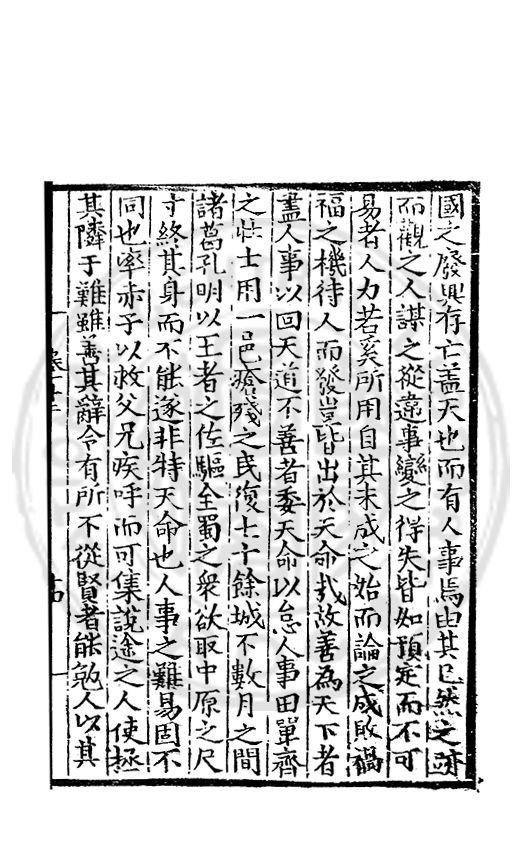 國之廢興存亡蓋天也而有人事焉由其已然之跡
而觀之人謀之從違事變之得失皆如預定而不可
易者人力若奚所用自其未成之始而論之成敗禍
福之機待人而發豈皆出於天命哉故善為天下者
盡人事以回天道不善者委天命以怠人事田單齊
之壯士用一邑瘡殘之民復七十餘城不數月之間
諸葛孔明以王者之佐驅全蜀之衆欲取中原之尺
寸終其身而不能遂非特天命也人事之難易固不
同也率赤子以救父兄疾呼而可集說途之人使拯
其隣于難雖善其辭令有所不從賢者能勉人以其